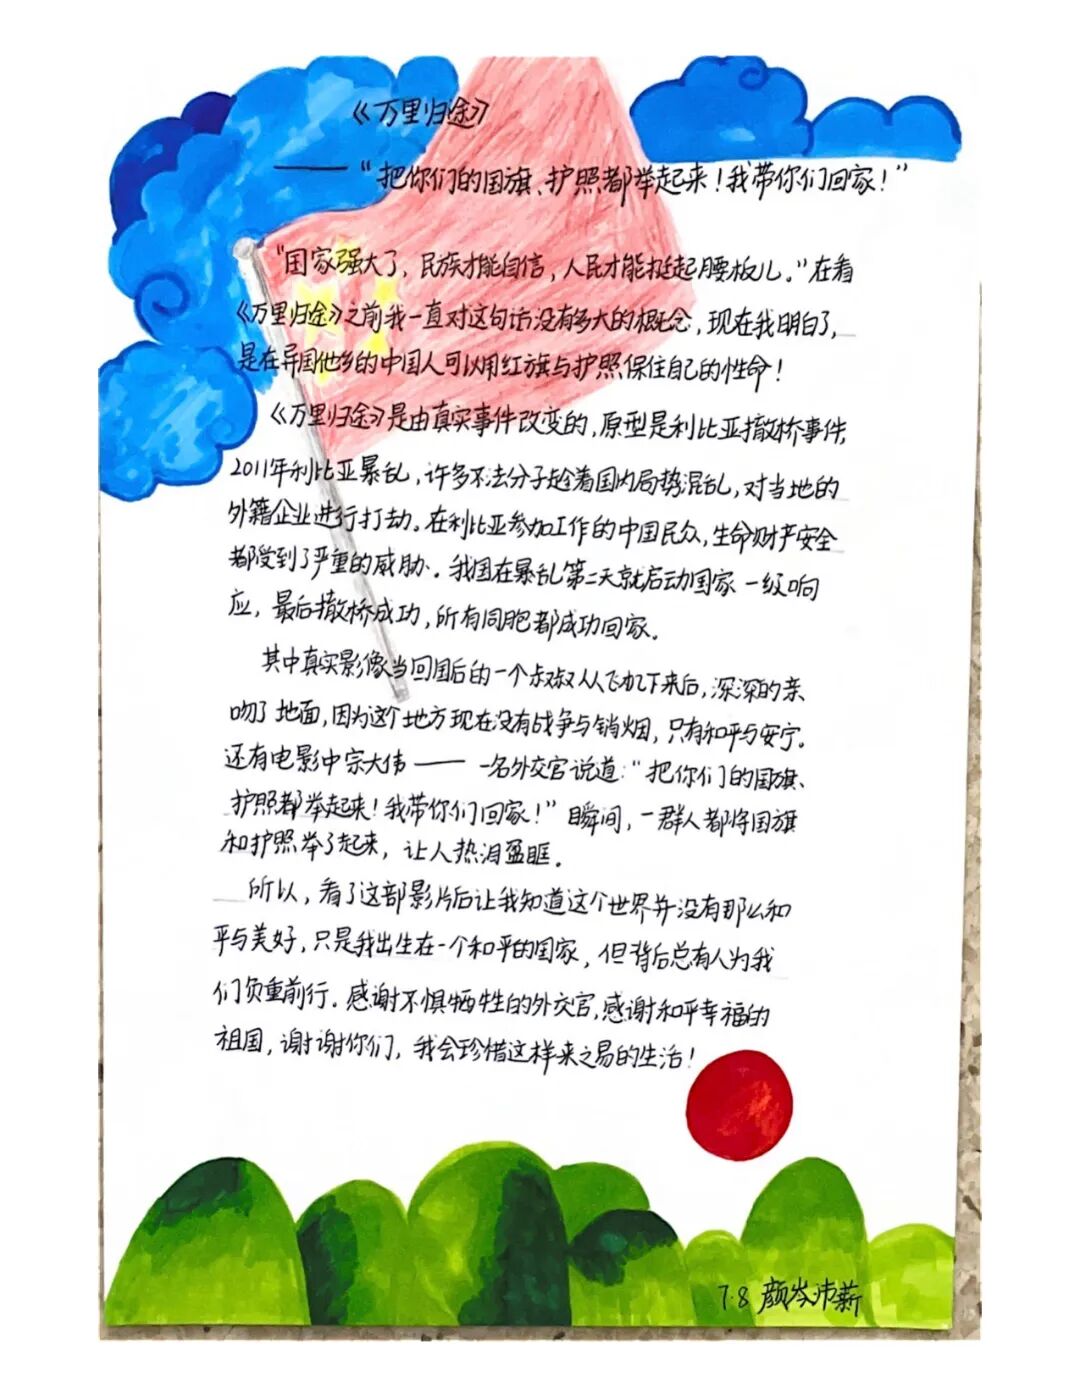 《万里归途》
——“把你们的国旗、护照都举起来！我带你们回家！”
“国家强大了，民族才能自信，人民才能挺起腰板儿。”在看
《万里归途》之前我一直对这句话没有多大的概念，现在我明白了，
是在异国他乡的中国人可以用红旗与护照保住自己的性命！
《万里归途》是由真实事件改变的，原型是利比亚撤桥事件，
2011年利比亚暴乱，许多不法分子趁着国内局势混乱，对当地的
外籍企业进行打劫。在利比亚参加工作的中国民众，生命财产安全
都受到了严重的威胁。我国在暴乱第二天就启动国家一级响
应，最后撤桥成功，所有同胞都成功回家。
其中真实影像当回国后的一个叔叔从飞机下来后，深深的亲
吻了地面，因为这个地方现在没有战争与销烟，只有和平与安宁。
还有电影中宗大伟——一名外交官说道：“把你们的国旗、
护照都举起来！我带你们回家！”瞬间，一群人都将国旗
和护照举了起来，让人热泪盈眶。
所以，看了这部影片后让我知道这个世界并没有那么和
平与美好，只是我出生在一个和平的国家，但背后总有人为我
们负重前行。感谢不惧牺牲的外交官，感谢和平幸福的
祖国，谢谢你们，我会珍惜这样来之易的生活！
7.8 颜岑沛薪